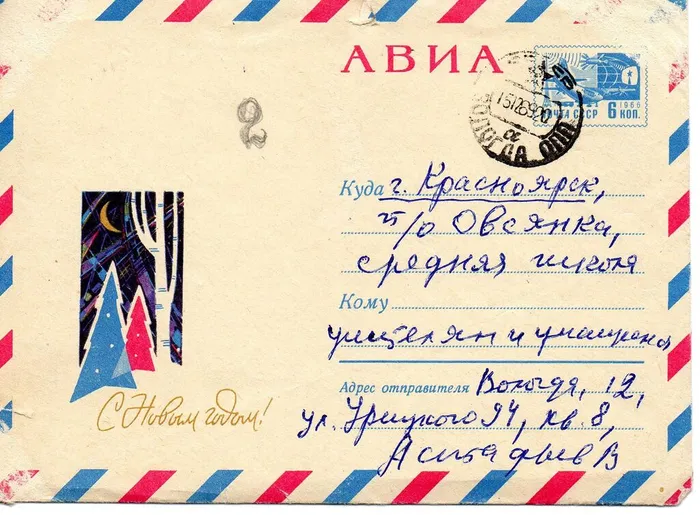 АВИА
1966
ПОЧТА СССР 6 КОП.
ВОЛОГДА
2
Куда г. Красноярск,
п/о Овсянка,
средняя школа
Кому
учителям и учащимся
Адрес отправителя Вологда, 12,
ул. Урицкого 94, кв. 8,
Астафьев В
С Новым годом!